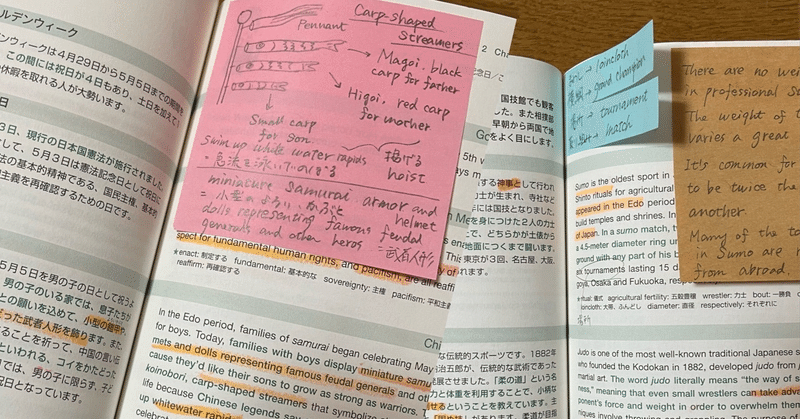 ルデンウィーク
ンウィークは4月29日から5月5日までの期間を
この間には祝日が4日もあり、土日を加えて
休暇を取れる人が大勢います。
3日、現行の日本国憲法が施行されました
して、5月3日は憲法記念日として祝日に
法の基本的精神である、国民主権、基本的
和主義を再確認するための日です。
5月5日を男の子の日として祝う
男の子のいる家では、息子たちが
との願いを込めて、小型の鎧甲や
だった武者人形を飾ります。また
ることを祈って、中国の言い伝
といわれる、コイをかたどった
では、男の子に限らず、子ど
祝日となっています。
Carp-shaped
Streamers
Pennant
Magoi. black
carp for father
Higoi, red carp
for mother
Small carp
for son.
Swim up while water rapids
急流を泳いでのぼる
揚げる
hoist
miniature samurai armor and
helmet
= 小型のよろいかぶと
dolls representing famous feudal
generals and other heros
= 武者人形
spect for fundamental human rights, and pacifism, are all reaffirmed
*enact: 制定する fundamental: 基本的な sovereignty: 主権 pacifism: 平和主義
reaffirm: 再確認する
In the Edo period, families of samurai began celebrating May
for boys. Today, families with boys display miniature samurai
mets and dolls representing famous feudal generals and
cause they'd like their sons to grow as strong as warriors.
koinobori, carp-shaped streamers that symbolize
life because Chinese legends say
up whitewater rapids
国技館でも観客
た。また相撲部
早朝から両国で地
をよく目にします。
する神事として行われ
力士が生まれ、寺社など
には国技となりました。
を身につけた2人の力士
て、どちらかが土俵から
地面につくまで闘います。
東京が3回、名古屋、大阪、
な伝統的スポーツです。1882年
治五郎が、伝統的な武術であった
展させました。「柔の道」という名
力と体重を利用することで、小柄な
せるということを教えています。
→ loincloth
横綱 → grand champion
場所 → tournament
取り組み → match
There are no wei
in professional Su
The weight of t
varies a great
It's common for
to be twice the
another.
Many of the to
in Sumo are
from abroad.
Sumo is the oldest sport in
Shinto rituals for agricultural
appeared in the Edo period
build temples and shrines. In
of Japan. In a sumo match,
a 4.5-meter diameter ring
ground with any part of his
six tournaments lasting 15
goya, Osaka and Fukuoka,
*ritual: 儀式 agricultural fertility: 五穀豊穣 wrestler: 力士 bout: 一勝負
loincloth: 大帯、ふんどし diameter: 直径 respectively: それぞれに
場所
Judo is one of the most well-known traditional Japanese
who founded the Kodokan in 1882, developed judo from
martial art. The word judo literally means "the way of
ness," meaning that even small wrestlers can take advan
ponent's force and weight in order to overwhelm them